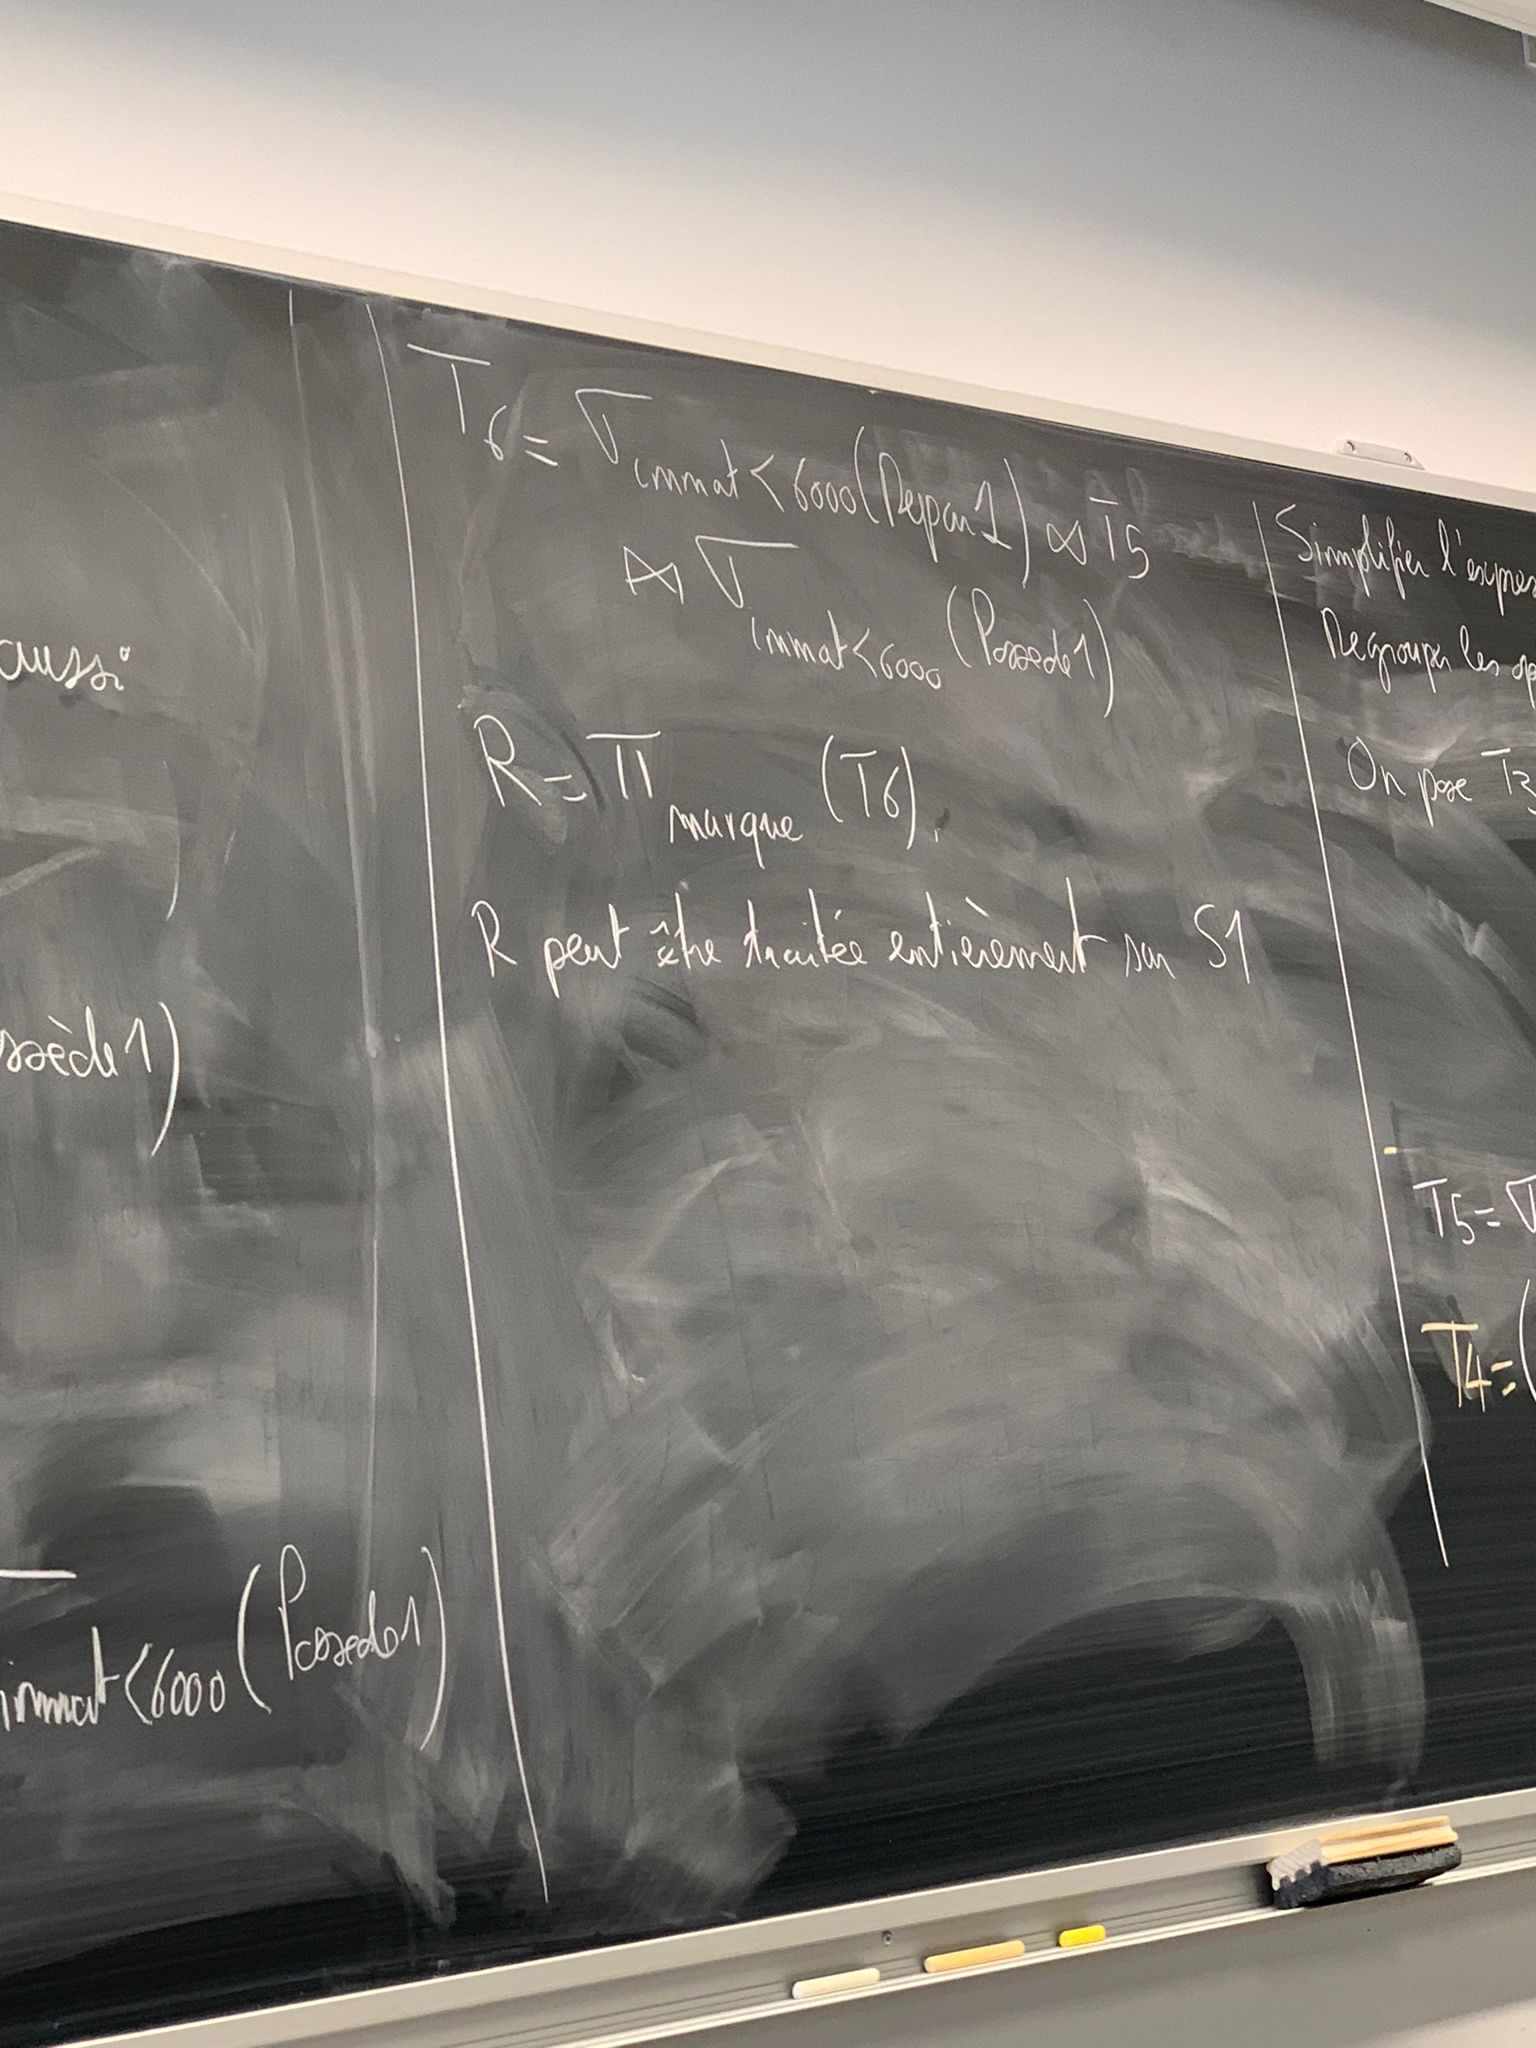 aussi
ssède1)
immat<6000(Possede1)
T6 = σ immat<6000(Respon1) ⋈ T5
⋈ σ immat<6000 (Possede1)
R = π marque (T6).
R peut être traitée entièrement sur S1
Simplifier l'expres
Regrouper les op
On pose T3
T5 = σ
T4 = (